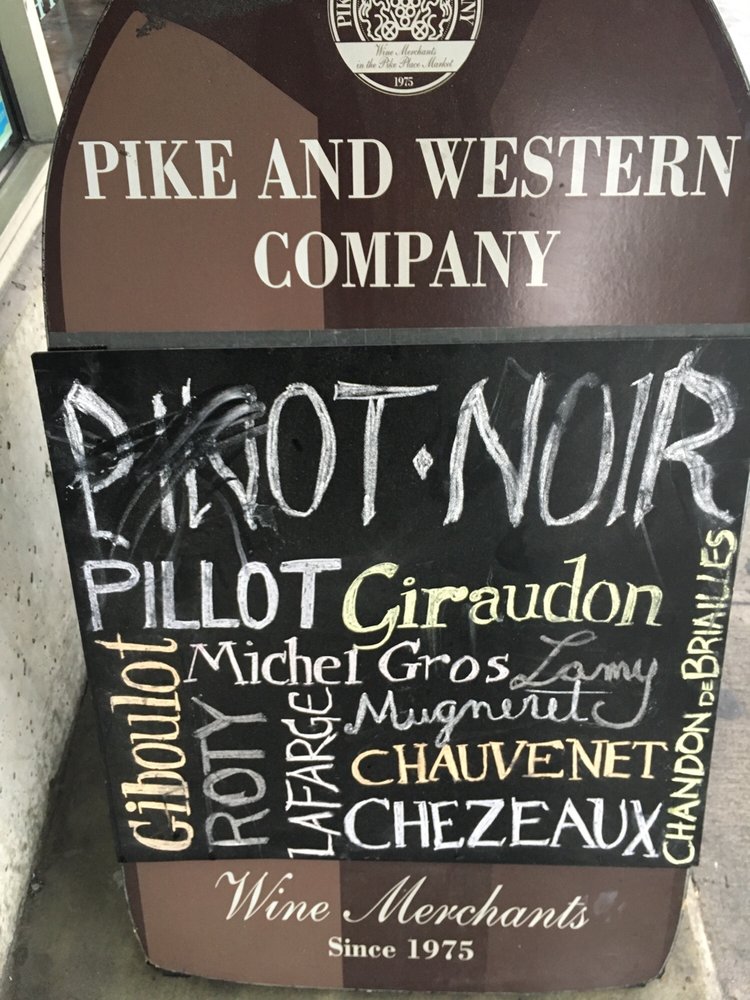 Wine Merchants
in the Pike Place Market
1975
PIKE AND WESTERN
COMPANY
PINOT · NOIR
PILLOT Giraudon
Michel Gros Lamy
Mugneret
CHAUVENET
CHEZEAUX
Giboulot
ROTY
LAFARGE
CHANDON DE BRIAILLES
Wine Merchants
Since 1975